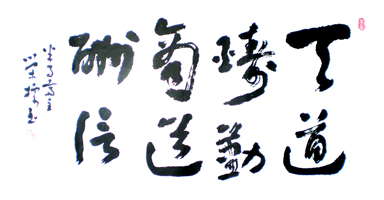 天道
醻勤
商道
酬信